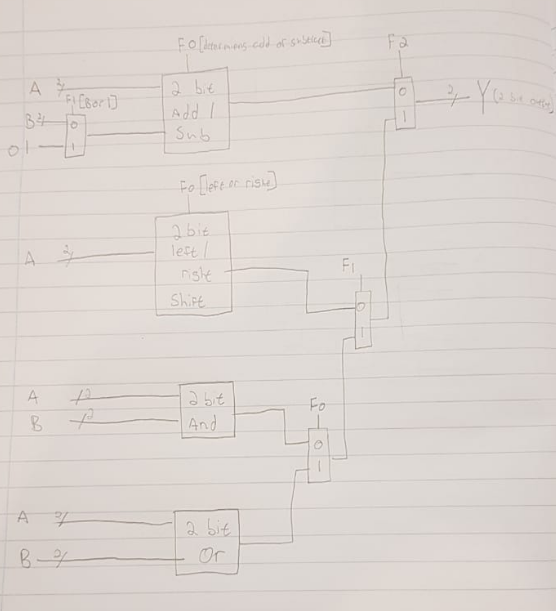 F0 [determins add or subtract]
F2
A 2
2 bit
Add /
Sub
0
1
2 Y (2 bit output)
F1 [B or 1]
B 2
0
01
1
F0 [left or right]
A 2
2 bit
left /
right
Shift
F1
0
1
A 2
B 2
2 bit
And
F0
0
1
A 2
B 2
2 bit
Or